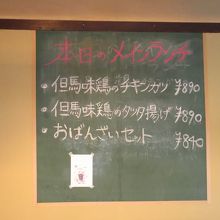 本日のメインランチ
・但馬味鶏のチキンカツ ¥890
・但馬味鶏のタツタ揚げ ¥890
・おばんざいセット ¥840